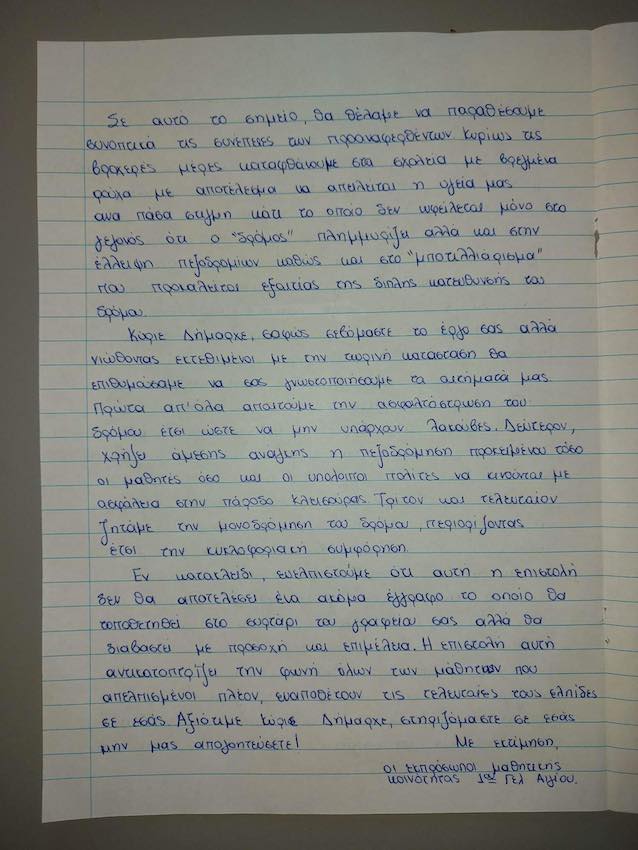 Σε αυτό το σημείο, θα θέλαμε να παραθέσουμε
συνοπτικά τις συνέπειες των προαναφερθέντων κυρίως τις
βροχερές μέρες καταφθάνουμε στα σχολεία με βρεγμένα
ρούχα με αποτέλεσμα να απειλείται η υγεία μας
ανα πάσα στιγμή κάτι το οποίο δεν ωφείλεται μόνο στο
γεγονός ότι ο "δρόμος" πλημμυρίζει αλλά και στην
έλλειψη πεζοδρομίων καθώς και στο "μποτιλλιάρισμα"
που προκαλείται εξαιτίας της διπλής κατεύθυνσης του
δρόμου.
Κύριε Δήμαρχε, σαφώς σεβόμαστε το έργο σας αλλά
νιώθοντας εκτεθιμένοι με την τωρινή κατάσταση θα
επιθυμούσαμε να σας γνωστοποιήσουμε τα αιτήματά μας.
Πρώτα απ' όλα απαιτούμε την ασφαλτόστρωση του
δρόμου έτσι ώστε να μην υπάρχουν λακούβες. Δεύτερον,
χρήζει άμεσης ανάγκης η πεζοδρόμηση προκειμένου τόσο
οι μαθητές όσο και οι υπόλοιποι πολίτες να κινούνται με
ασφάλεια στην πάροδο Κλεισούρας. Τρίτον και τελευταίον
ζητάμε την μονοδρόμηση του δρόμου, περιορίζοντας
έτσι την κυκλοφοριακή συμφόρηση.
Εν κατακλείδι, ευελπιστούμε ότι αυτή η επιστολή
δεν θα αποτελέσει ένα ακόμα έγγραφο το οποίο θα
τοποθετηθεί στο συρτάρι του γραφείου σας αλλά θα
διαβαστεί με προσοχή και επιμέλεια. Η επιστολή αυτή
αντικατοπτρίζει την φωνή όλων των μαθητών που
απελπισμένοι πλέον, εναποθέτουν τις τελευταίες τους ελπίδες
σε εσάς. Αξιότιμε κύριε Δήμαρχε, στηριζόμαστε σε εσάς
μην μας απογοητεύσετε!
Με εκτίμηση,
οι εκπρόσωποι μαθητικής
κοινότητας 1ου Γελ Αιγίου.